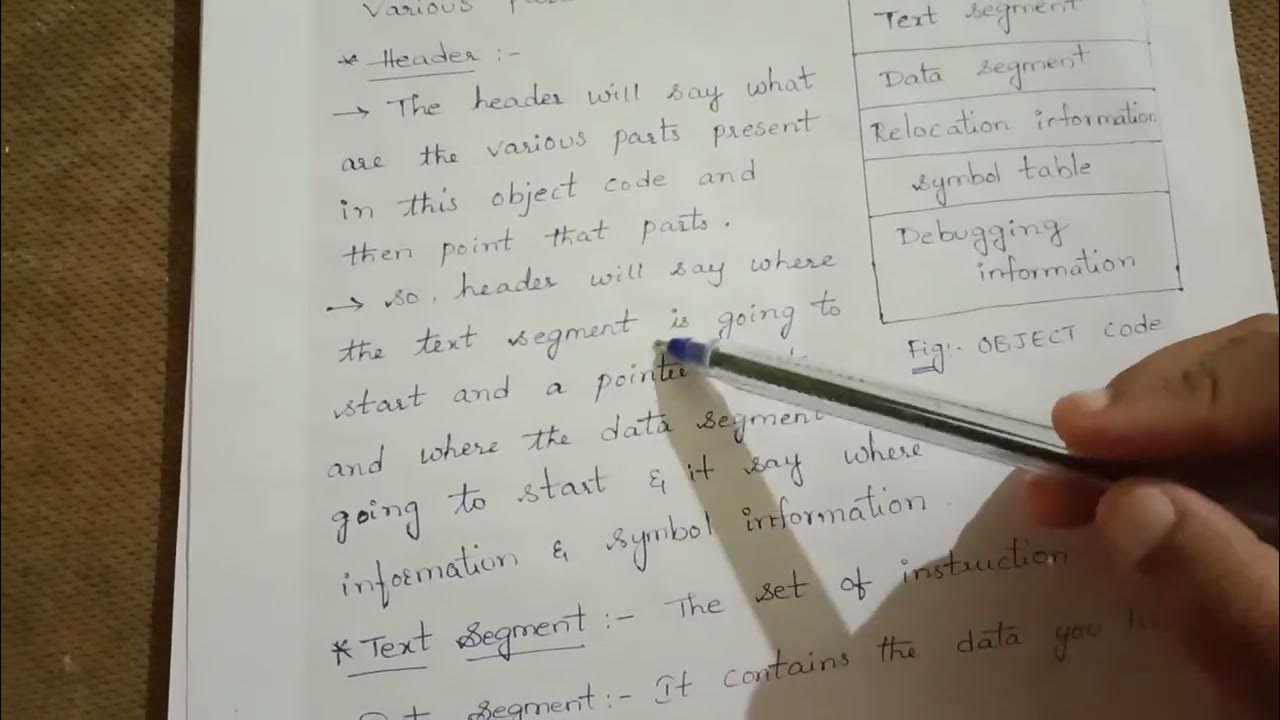 Various
* Header :-
→ The header will say what
are the various parts present
in this object code and
then point that parts.
→ so, header will say where
the text segment is going to
start and a pointer
and where the data segment
going to start & it say where
information & symbol information
* Text Segment :- The set of instruction
Segment :- It contains the data you
Text segment
Data segment
Relocation information
symbol table
Debugging
information
Fig:- OBJECT code